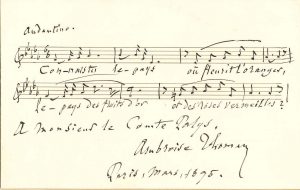 Andantino.
Connais-tu le pays où fleurit l'oranger,
le pays des fruits d'or et des roses vermeilles?
A monsieur le Comte
Ambroise Thomas
Paris, mars, 1895.